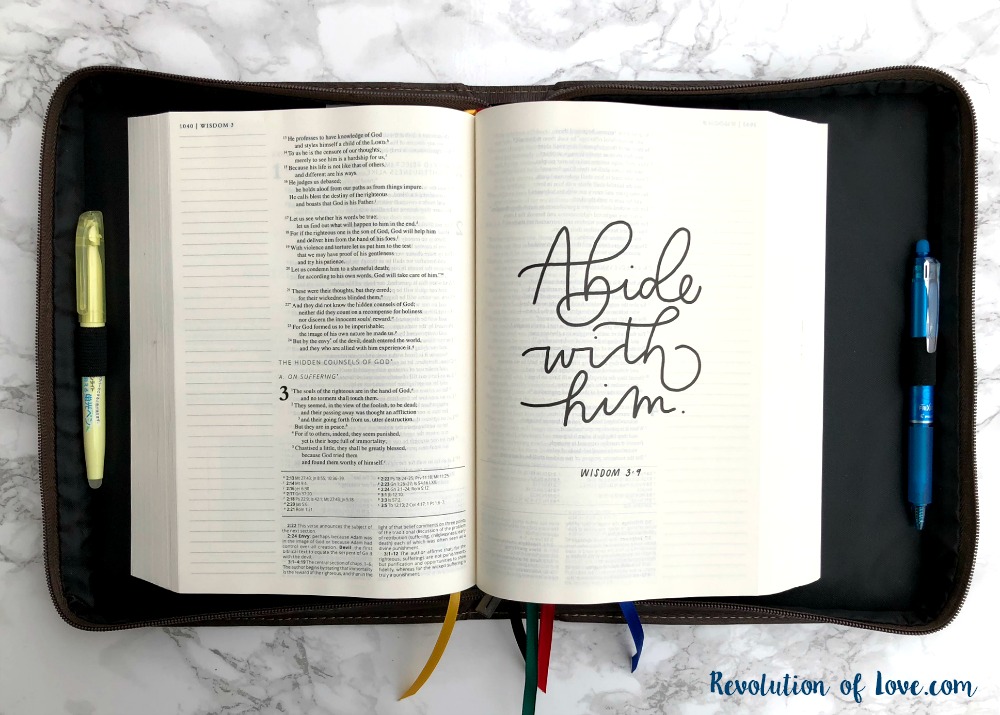 1040 | WISDOM 3
13 He professes to have knowledge of God
and styles himself a child of the LORD.
14 To us he is the censure of our thoughts;
merely to see him is a hardship for us,
15 Because his life is not like that of others,
and different are his ways.
16 He judges us debased;
he holds aloof from our paths as from things impure.
He calls blest the destiny of the righteous
and boasts that God is his Father.
17 Let us see whether his words be true;
let us find out what will happen to him in the end.
18 For if the righteous one is the son of God, God will help him
and deliver him from the hand of his foes.
19 With violence and torture let us put him to the test
that we may have proof of his gentleness
and try his patience.
20 Let us condemn him to a shameful death;
for according to his own words, God will take care of him."
21 These were their thoughts, but they erred;
for their wickedness blinded them,
22 And they did not know the hidden counsels of God;
neither did they count on a recompense for holiness
nor discern the innocent souls' reward.
23 For God formed us to be imperishable;
the image of his own nature he made us.
24 But by the envy of the devil, death entered the world,
and they who are allied with him experience it.
THE HIDDEN COUNSELS OF GOD*
A. ON SUFFERING*
3 1 The souls of the righteous are in the hand of God,
and no torment shall touch them.
2 They seemed, in the view of the foolish, to be dead;
and their passing away was thought an affliction
3 and their going forth from us, utter destruction.
But they are in peace.
4 For if to others, indeed, they seem punished,
yet is their hope full of immortality;
5 Chastised a little, they shall be greatly blessed,
because God tried them
and found them worthy of himself.
2:22 This verse announces the subject of
the next section.
2:24 Envy: perhaps because Adam was
in the image of God or because Adam had
control over all creation. Devil: the first
biblical text to equate the serpent of Gn 3
with the devil.
Abide
with
him.
WISDOM 3:9
Revolution of Love.com